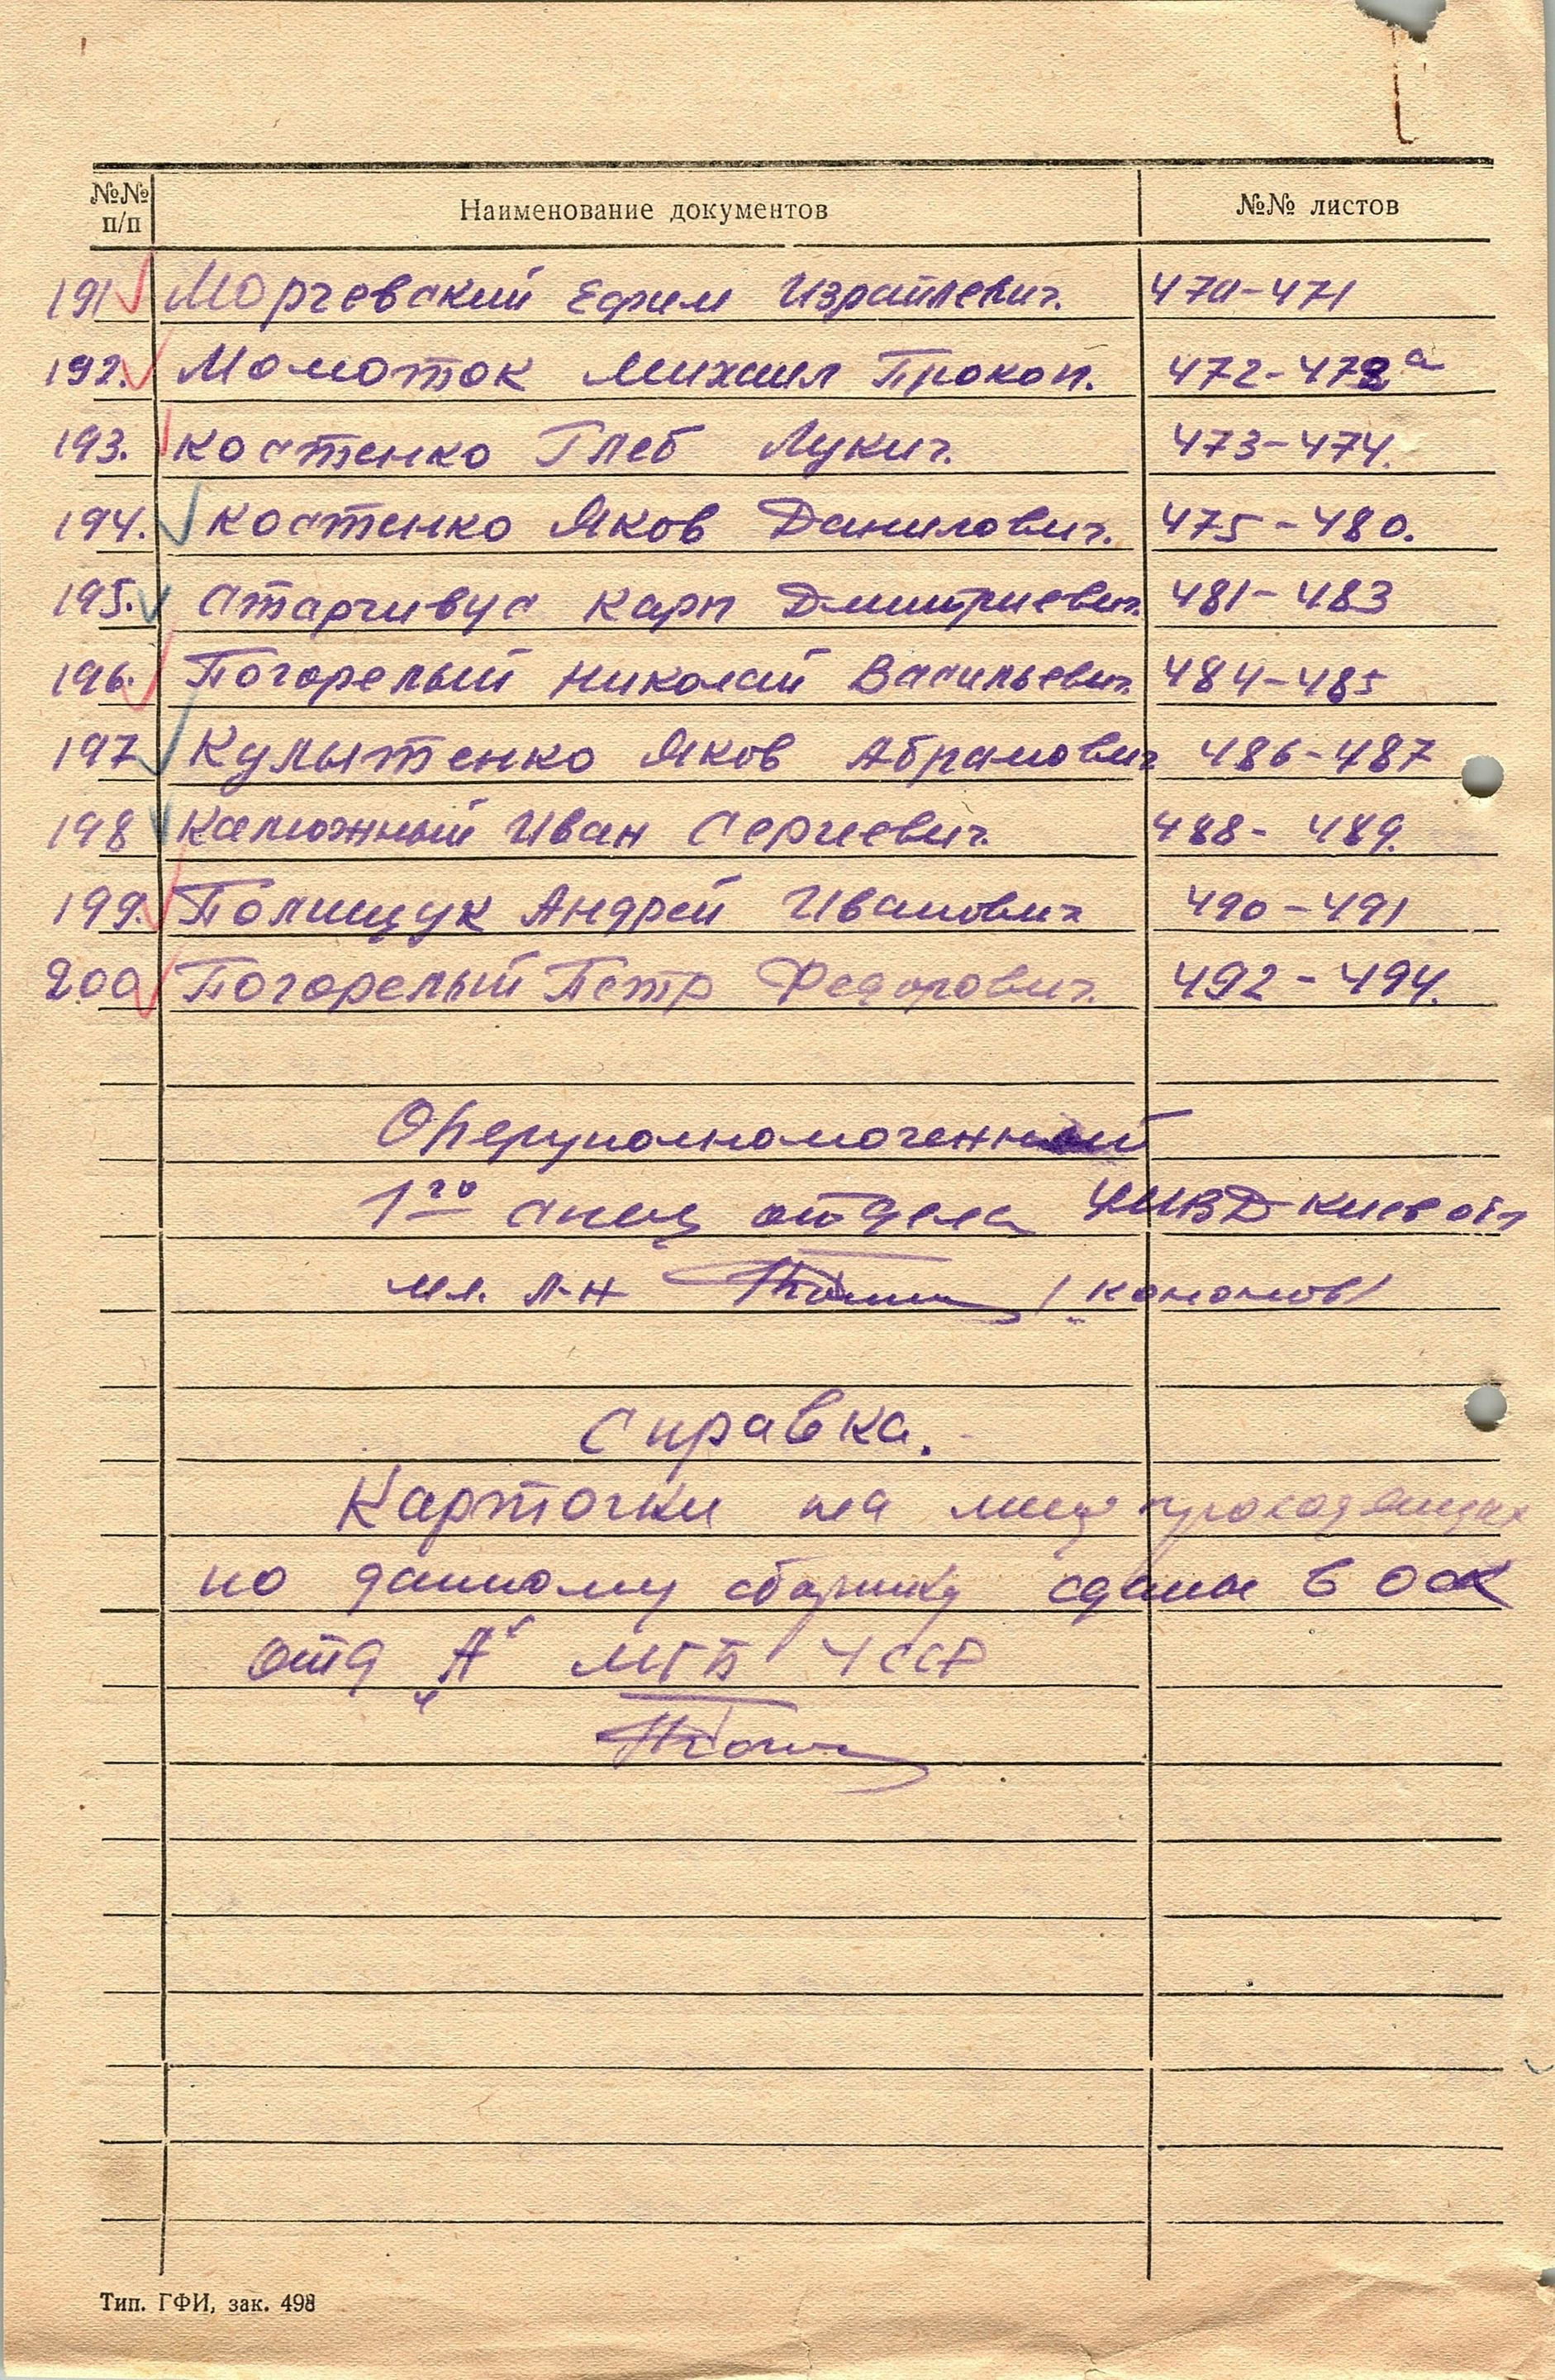 №№ п/п Наименование документов №№ листов
191 Моргевский Ефим Израилевич. 470-471
192. Момоток Михаил Прокоп. 472-472а
193. Костенко Глеб Лукич. 473-474.
194. Костенко Яков Данилович. 475-480.
195. Старчивус Карп Дмитриевич 481-483
196. Погорелый Николай Васильевич 484-485
197 Культенко Яков Абрамович 486-487
198 Калюжный Иван Сергеевич. 488-489.
199. Полищук Андрей Иванович 490-491
200 Погорелый Петр Федорович. 492-494.
Оперуполномоченный
1го спец отдела УМВД Киев обл
мл. л-н /Кононов/
Справка.
Карточки на лиц проходящих
по данному сборнику сданы в ОСК
отд „А“ МГБ УССР
Тип. ГФИ, зак. 498